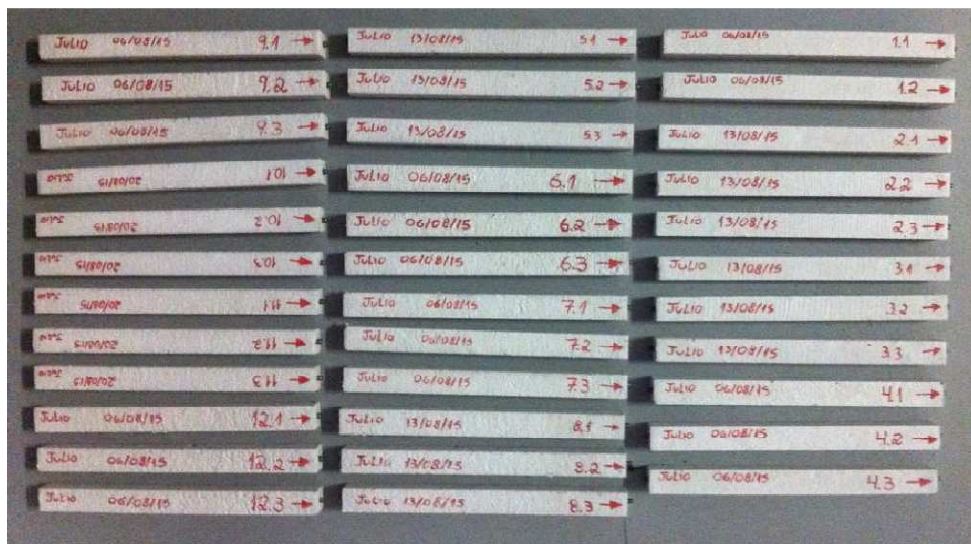 Julio 06/08/15 9.1 →
Julio 06/08/15 9.2 →
Julio 06/08/15 9.3 →
Julio 20/08/15 10.1 →
Julio 20/08/15 10.2 →
Julio 20/08/15 10.3 →
Julio 20/08/15 11.1 →
Julio 20/08/15 11.2 →
Julio 20/08/15 11.3 →
Julio 06/08/15 12.1 →
Julio 06/08/15 12.2 →
Julio 06/08/15 12.3 →
Julio 13/08/15 5.1 →
Julio 13/08/15 5.2 →
Julio 13/08/15 5.3 →
Julio 06/08/15 6.1 →
Julio 06/08/15 6.2 →
Julio 06/08/15 6.3 →
Julio 06/08/15 7.1 →
Julio 06/08/15 7.2 →
Julio 06/08/15 7.3 →
Julio 13/08/15 8.1 →
Julio 13/08/15 8.2 →
Julio 13/08/15 8.3 →
Julio 06/08/15 1.1 →
Julio 06/08/15 1.2 →
Julio 13/08/15 2.1 →
Julio 13/08/15 2.2 →
Julio 13/08/15 2.3 →
Julio 13/08/15 3.1 →
Julio 13/08/15 3.2 →
Julio 13/08/15 3.3 →
Julio 06/08/15 4.1 →
Julio 06/08/15 4.2 →
Julio 06/08/15 4.3 →